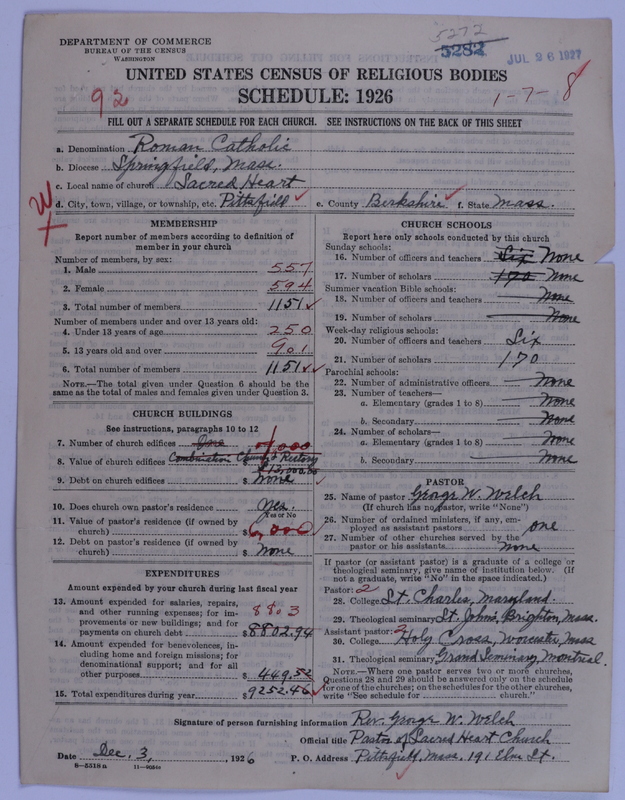 DEPARTMENT OF COMMERCE
BUREAU OF THE CENSUS
WASHINGTON
5272
5282
JUL 26 1927
UNITED STATES CENSUS OF RELIGIOUS BODIES
SCHEDULE: 1926
92
1-7-8
FILL OUT A SEPARATE SCHEDULE FOR EACH CHURCH. SEE INSTRUCTIONS ON THE BACK OF THIS SHEET
a. Denomination Roman Catholic
b. Diocese Springfield, Mass.
c. Local name of church Sacred Heart
d. City, town, village, or township, etc. Pittsfield e. County Berkshire f. State Mass.
MEMBERSHIP
Report number of members according to definition of
member in your church
Number of members, by sex:
1. Male 557
2. Female 594
3. Total number of members 1151
Number of members under and over 13 years old:
4. Under 13 years of age 250
5. 13 years old and over 901
6. Total number of members 1151
NOTE.—The total given under Question 6 should be the
same as the total of males and females given under Question 3.
CHURCH BUILDINGS
See instructions, paragraphs 10 to 12
7. Number of church edifices One 1
8. Value of church edifices Combination Church & Rectory $
$13,000.00
9. Debt on church edifices $ None
10. Does church own pastor's residence Yes.
Yes or No
11. Value of pastor's residence (if owned by
church) $ 6,000
12. Debt on pastor's residence (if owned by
church) $ None
EXPENDITURES
Amount expended by your church during last fiscal year
13. Amount expended for salaries, repairs,
and other running expenses; for im-
provements or new buildings; and for
payments on church debt $ 8802.94
8803
14. Amount expended for benevolences, in-
cluding home and foreign missions; for
denominational support; and for all
other purposes $ 449.52
15. Total expenditures during year $ 9252.46
CHURCH SCHOOLS
Report here only schools conducted by this church
Sunday schools:
16. Number of officers and teachers Six None
17. Number of scholars 170 None
Summer vacation Bible schools:
18. Number of officers and teachers None
19. Number of scholars None
Week-day religious schools:
20. Number of officers and teachers Six
21. Number of scholars 170
Parochial schools:
22. Number of administrative officers None
23. Number of teachers—
a. Elementary (grades 1 to 8) None
b. Secondary None
24. Number of scholars—
a. Elementary (grades 1 to 8) None
b. Secondary None
PASTOR
25. Name of pastor George W. Welch
(If church has no pastor, write "None")
26. Number of ordained ministers, if any, em-
ployed as assistant pastors one
27. Number of other churches served by the
pastor or his assistants None
If pastor (or assistant pastor) is a graduate of a college or
theological seminary, give name of institution below. (If
not a graduate, write "No" in the space indicated.)
Pastor: 2
28. College St. Charles, Maryland.
29. Theological seminary St. John's, Brighton, Mass.
Assistant pastor: 2
30. College Holy Cross, Worcester, Mass
31. Theological seminary Grand Seminary, Montreal.
NOTE.—Where one pastor serves two or more churches,
Questions 28 and 29 should be answered only on the schedule
for one of the churches; on the schedules for the other churches,
write "See schedule for church."
Signature of person furnishing information Rev. George W. Welch
Official title Pastor of Sacred Heart Church
Date Dec. 3, 1926 P. O. Address Pittsfield, Mass. 191 Elm St.
8—5518 a 11—9054c